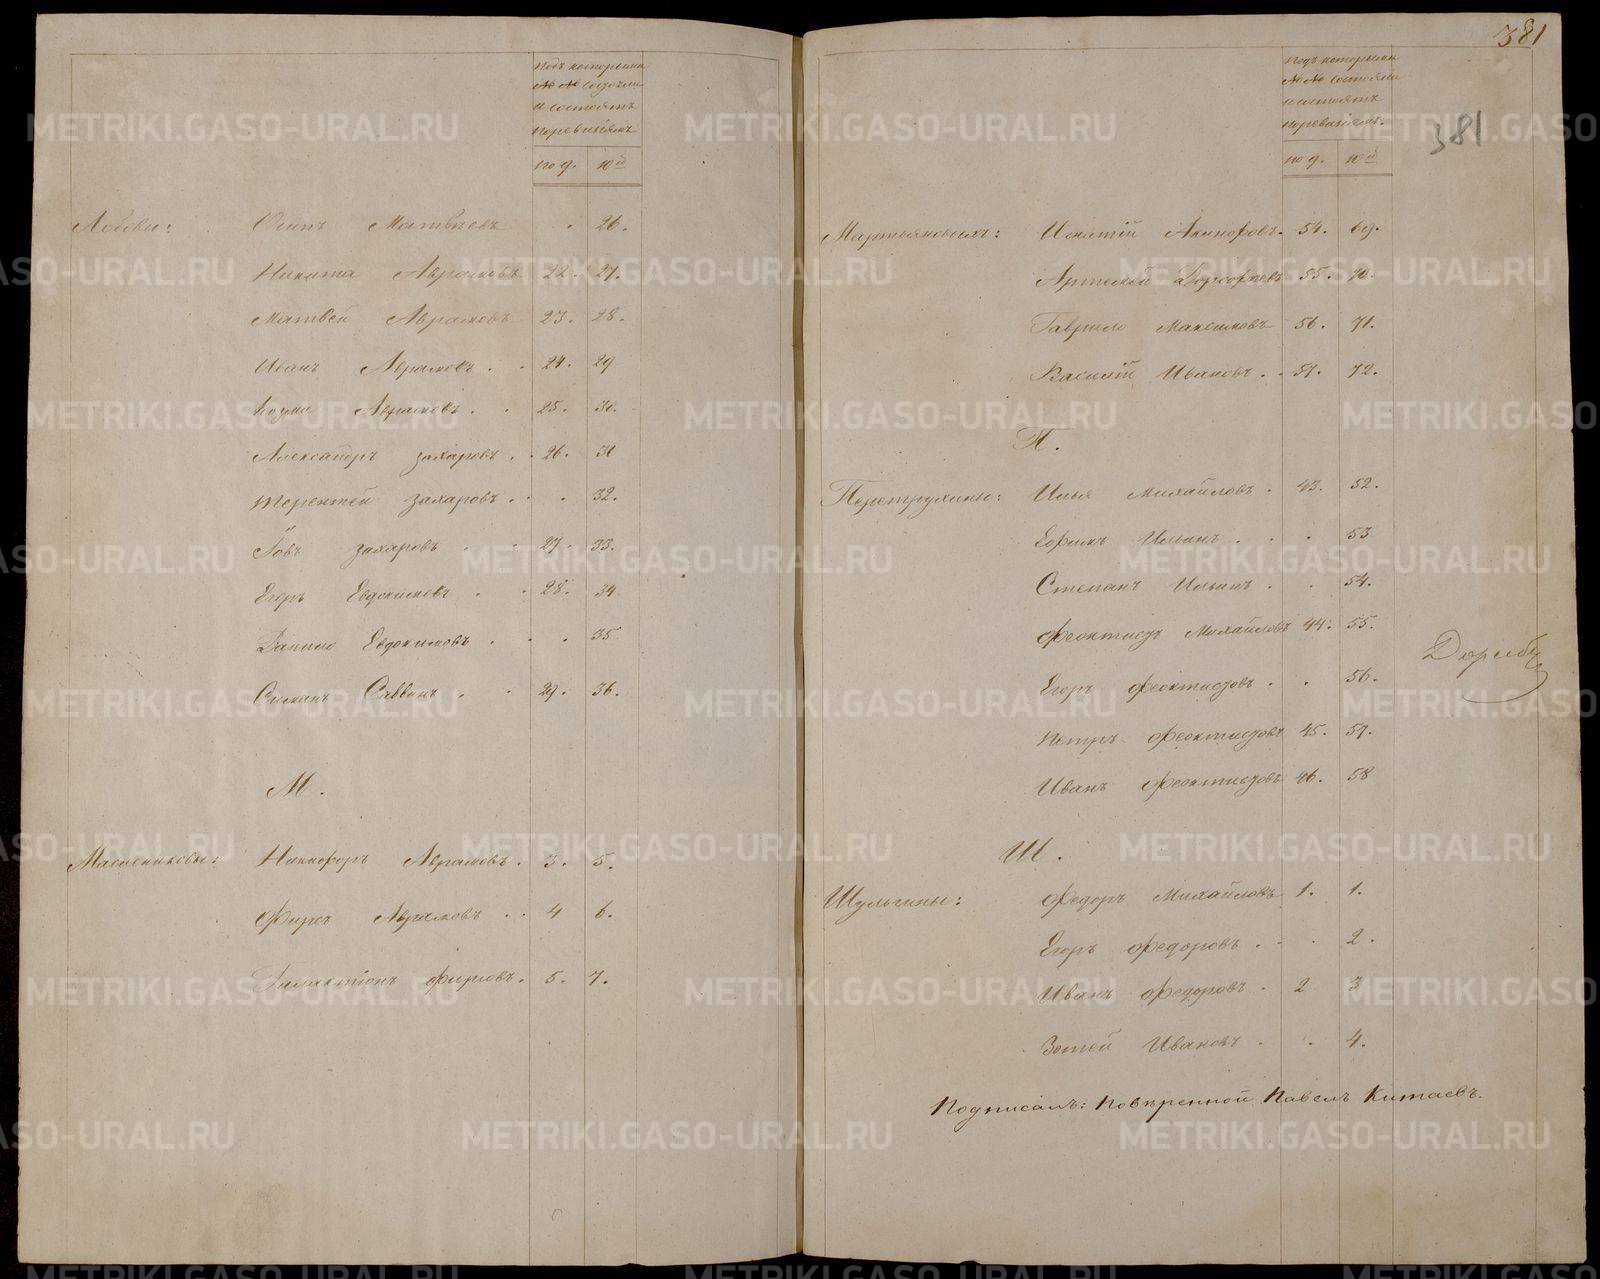 Подъ которыми
№№ состояли
и состоятъ
поревизіямъ
по 9. 10й
Лобовы: Осипъ Матвѣевъ . 26.
Никита Аврамовъ 22. 27.
Матвей Аврамовъ 23. 28.
Иванъ Аврамовъ . . 24. 29
Козма Аврамовъ . . 25. 30.
Александръ Захаровъ . . 26. 31
Терентей Захаровъ . . . 32.
Іовъ Захаровъ . . 27. 33.
Егоръ Евдокимовъ . . 28. 34
Данило Евдокимовъ . . . 35
Симонъ Саввинъ . . 29. 36.
М.
Маслениковы: Никифоръ Аврамовъ . 3. 5.
Фирсъ Аврамовъ . . 4 6.
Галактіонъ Фирсовъ . 5. 7.
381
381
Подъ которыми
№№ состояли
и состоятъ
поревизіямъ.
по 9. 10й
Мартьяновыхъ: Игнатій Никифоровъ. 54. 69.
Артемей 55. 70.
Гаврило Максимовъ 56. 71.
Василій Ивановъ . . 57. 72.
П.
Перетрухины: Илья Михайловъ . 43. 52.
Ефимъ Ильинъ . . . 53
Степанъ Ильинъ . . 54.
Феоктистъ Михайловъ 44. 55.
Егоръ Феоктистовъ . . 56.
Петръ Феоктистовъ 45. 57.
Иванъ Феоктистовъ 46. 58
Ш.
Шульгины: Федоръ Михайловъ 1. 1.
Егоръ Федоровъ . . . 2.
Иванъ Федоровъ . 2 3
Зотей Ивановъ . . 4.
Подписалъ: Повѣренной Павелъ Китаевъ.
METRIKI.GASO-URAL.RU